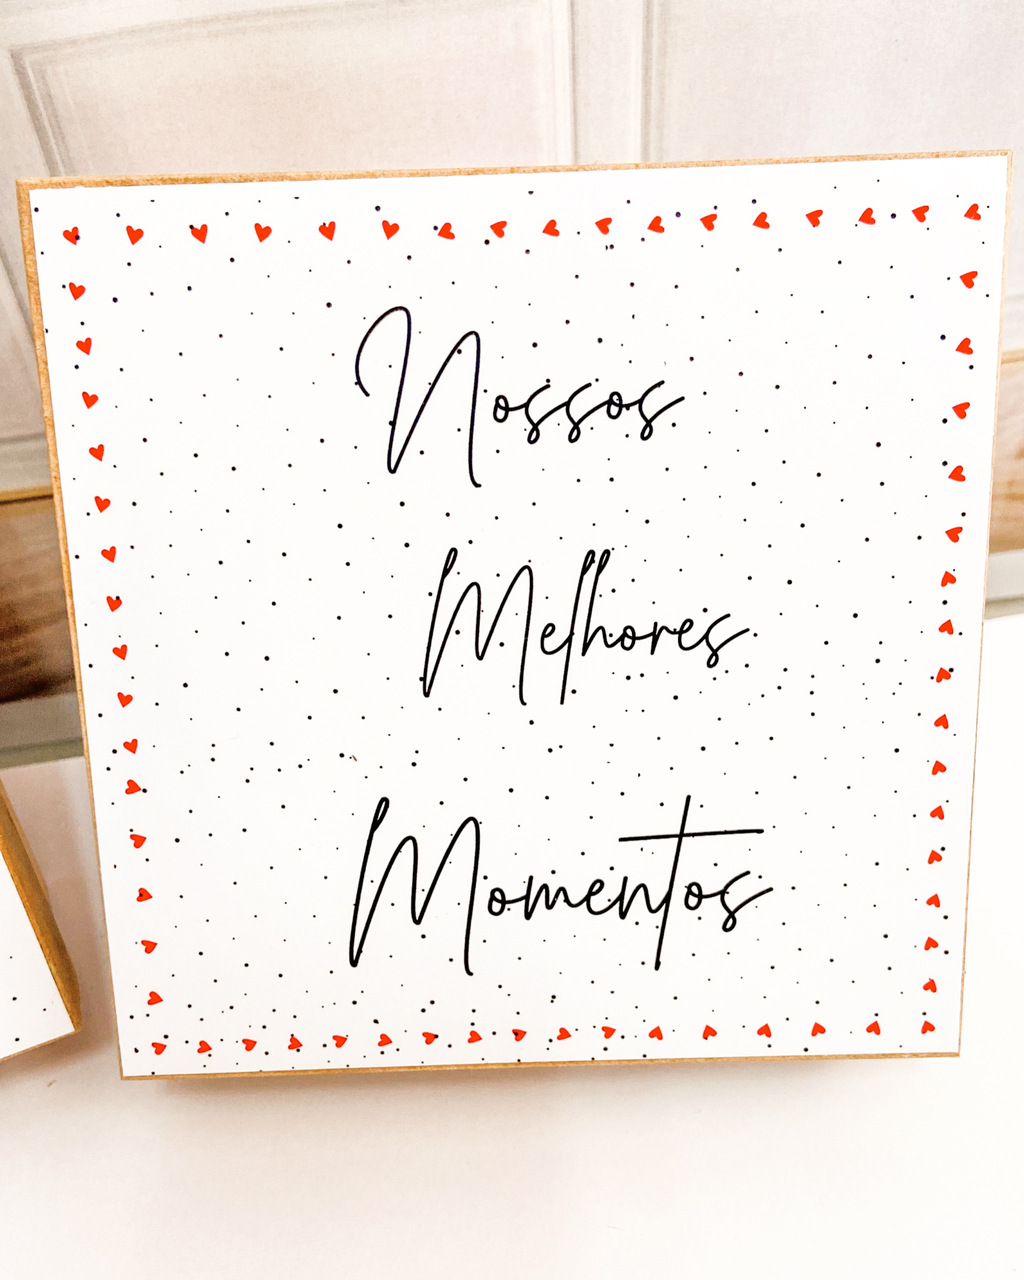 Nossos
Melhores
Momentos